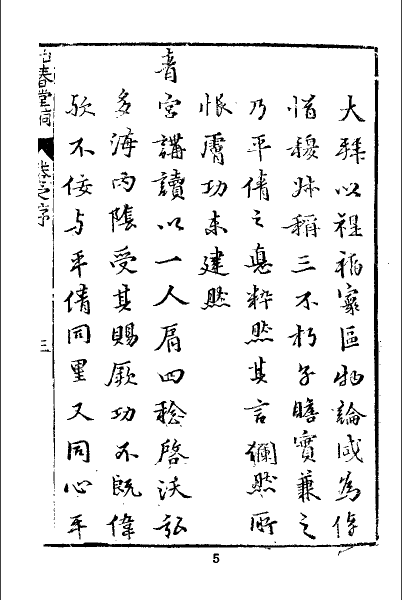 大拜以裡褔寰區物論咸為倬
惜穆姊稱三不朽子瞻實兼之
乃平倩之息粹然其言斕然所
恨膚功未建然
青宮講讀以一人肩四稔啓沃弘
多海內陰受其賜厥功不既偉
歟不佞与平倩同里又同心平
春堂
卷之序
三
5